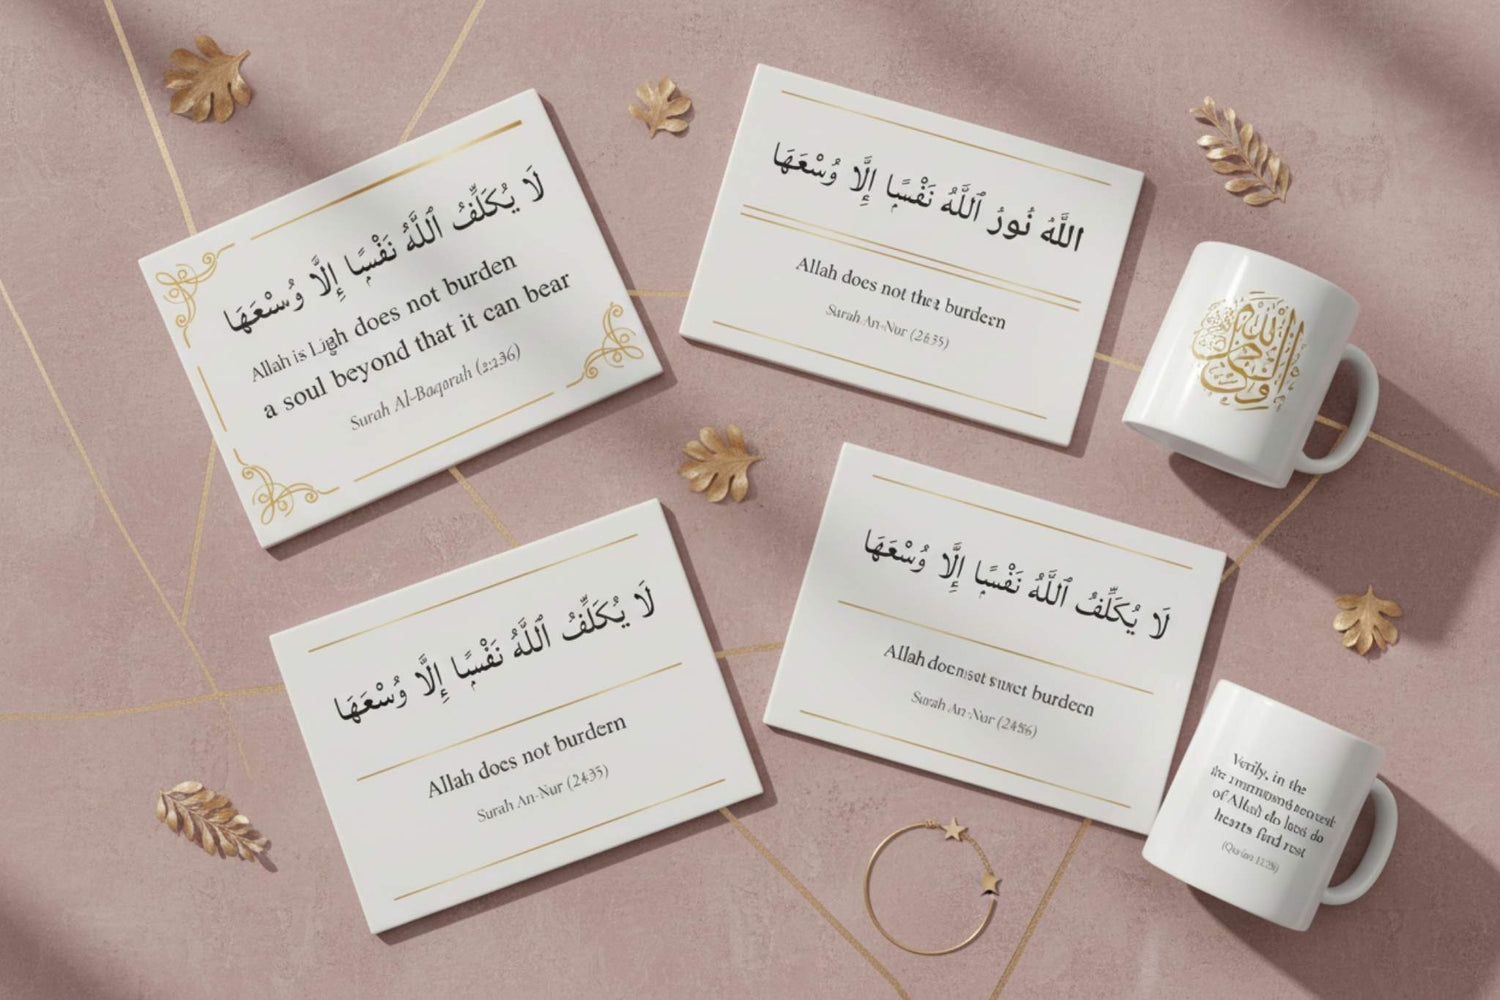 لَا يُكَلِّفُ ٱللَّهُ نَفْسًا إِلَّا وُسْعَهَا
Allah is Ligh does not burden
a soul beyond that it can bear
Surah Al-Baqaruh (2:236)
اللَّهُ نُورُ ٱللَّهُ نَفْسًا إِلَّا وُسْعَهَا
Allah does not that burdeen
Surah An-Nur (2635)
لَا يُكَلِّفُ ٱللَّهُ نَفْسًا إِلَّا وُسْعَهَا
Allah does not burdern
Surah An-Nur (2435)
لَا يُكَلِّفُ ٱللَّهُ نَفْسًا إِلَّا وُسْعَهَا
Allah burdeen
Surah An-Nur
Verily, in the
the
of Allah do do
hearts find rest